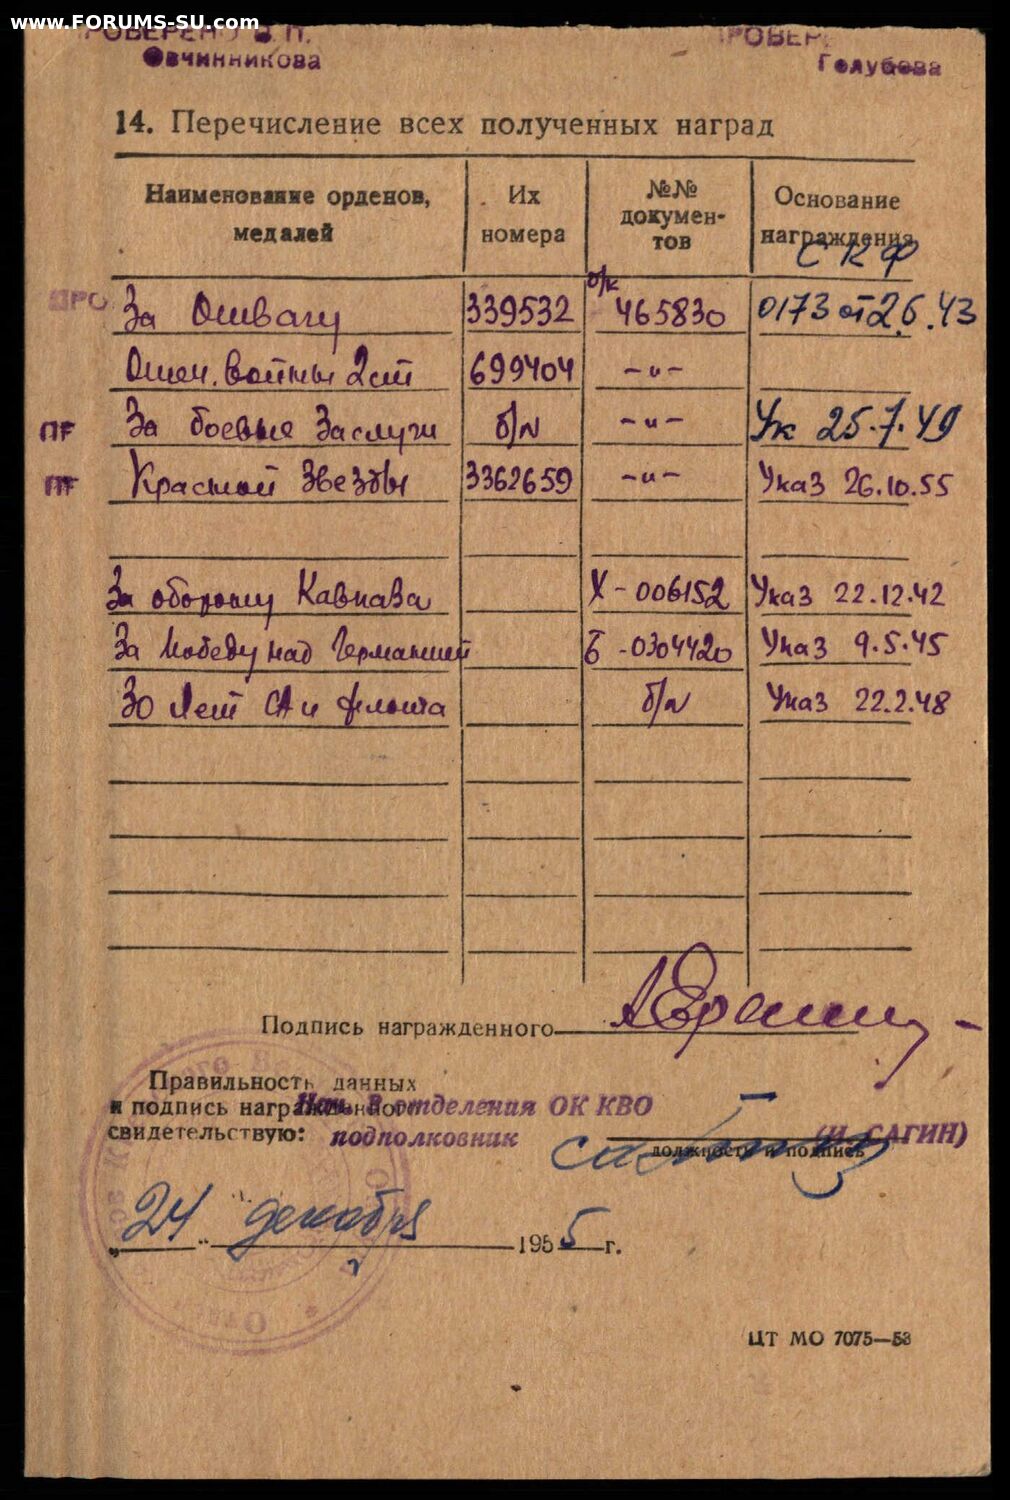 www.FORUMS-SU.com
Овчинникова
Голубева
14. Перечисление всех полученных наград
Наименование орденов, медалей
Их номера
№№ докумен-тов
Основание награждения
СКФ
За Отвагу 339532 о/к 465830 0173 от 2.6.43
Отеч. войны 2 ст 699404 -"-
ПГ За боевые заслуги б/N -"- Ук 25.7.49
ПГ Красной Звезды 3362659 -"- Указ 26.10.55
За оборону Кавказа Х-006152 Указ 22.12.42
За победу над Германией Б-0304420 Указ 9.5.45
30 лет СА и флота б/N Указ 22.2.48
Подпись награжденного
Правильность данных
и подпись награжденного
свидетельствую:
Нач. 3 отделения ОК КВО
подполковник (И. САГИН)
должность и подпись
„24" декабря 1955 г.
ЦТ МО 7075—53